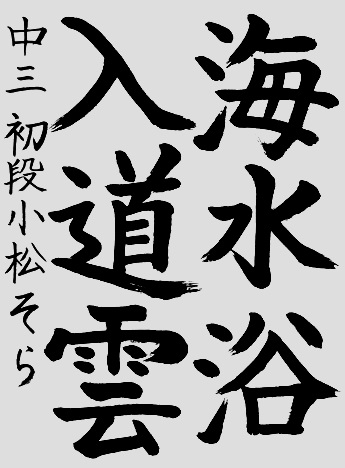 海水浴
入道雲
中三 初段 小松そら